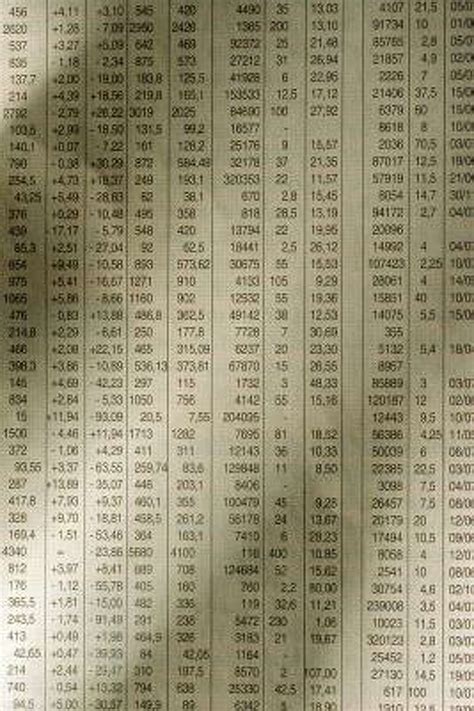 456 +4,11 +3,10 545 420 4490 35 13,03 4107 21,5
2620 +1,26 -7,09 2950 2426 1385 200 13,10 91734 10
537 +3,27 +5,09 642 469 92372 25 21,48 65765 2,8
635 1,18 -2,34 875 573 27212 31 26,94 21857 4,9
137,7 +2,00 -19,00 183,8 125,5 41928 6 22,96 2226 7
214 +4,39 +18,56 219,8 165,1 153533 12,5 17,12 21406 37,5
2792 -2,79 +26,22 3019 2025 84690 100 27,92 6379 60
103,5 +2,99 -18,50 131,5 99,2 16577 - 8618 8
140,1 +0,07 -7,22 161 128,2 25176 9 15,57 2036 70,5
790 -0,38 +30,29 872 584,48 32178 37 21,35 87017 12,5
254,5 +4,73 +18,37 249 193,1 320353 22 11,57 57919 11,5
43,25 +5,49 -28,63 62 38,1 670 2,8 15,45 8054 14,7
376 +0,29 -10,48 495 358 818 28,5 13,19 94172 2,7
439 -17,17 -5,79 548 420 13794 22 19,95 20096
65,3 +2,51 -27,04 92 62,5 18441 2,5 26,12 14992 4
654 +9,49 -10,58 893 573,62 30675 55 15,53 107423 2,25
975 +5,41 -16,67 1271 910 4133 105 9,29 28061 4
1065 +5,86 -8,66 1160 902 12532 55 19,36 15851 40
476 -0,83 +13,88 486,8 362,5 49142 38 12,53 14075 5,5
214,8 +2,29 -6,61 250 177,8 7728 7 30,69 355
466 +2,08 +22,15 465 315,09 6237 20 23,30 5132 5,4
398,3 +3,86 -10,89 536,13 373,81 67870 15 26,55 8957
145 +4,69 -42,23 297 115 1732 3 48,33 85889 3
834 +2,84 -5,33 1050 756 4142 55 15,16 120187 12
15 +11,94 -93,09 20,5 7,55 204035 - 12443 9,5
1500 -4,46 +11,94 1713 1282 7695 81 18,52 56386 4,25
372 -1,06 +4,29 411 311 12143 36 10,33 50039 6
93,55 +3,37 -63,55 259,74 83,6 129848 11 8,50 22385 22,5
287 +13,89 -35,07 446 203,1 8406 - 3098 7,5
417,8 +7,93 +9,37 460,1 355 100479 45 9,28 26457 7,5
328 +9,70 -18,81 458,5 261,2 56178 24 13,67 20179 20
169,4 -1,51 -53,46 364 163,1 7410 6 28,23 17494 10,5
4340 = -23,86 5680 4100 116 400 10,85 8068 4
812 +3,97 +8,41 889 708 124684 52 15,62 2541 10
176 -1,12 -55,78 405 160 760 2,2 80,00 30754 4,6
365,5 +1,81 -15,00 482 335 119 32,6 11,21 239008 3,5
243,5 -1,74 -91,49 291 235 5472 230 1,06 10023 11,5
413 +0,49 +1,98 464,9 326 3183 21 19,67 320123 2,8
42,65 +0,47 -39,93 84 42,05 1164 - 25452 1,2
214 +2,44 310 197,5 8570 2 107,00 27130 14,5
740 -0,54 +13,32 794 638 25330 42,5 17,41 617 100
94,5 +5,00 -30,57 149,9 89 6342 5 18,90 1910 12,6